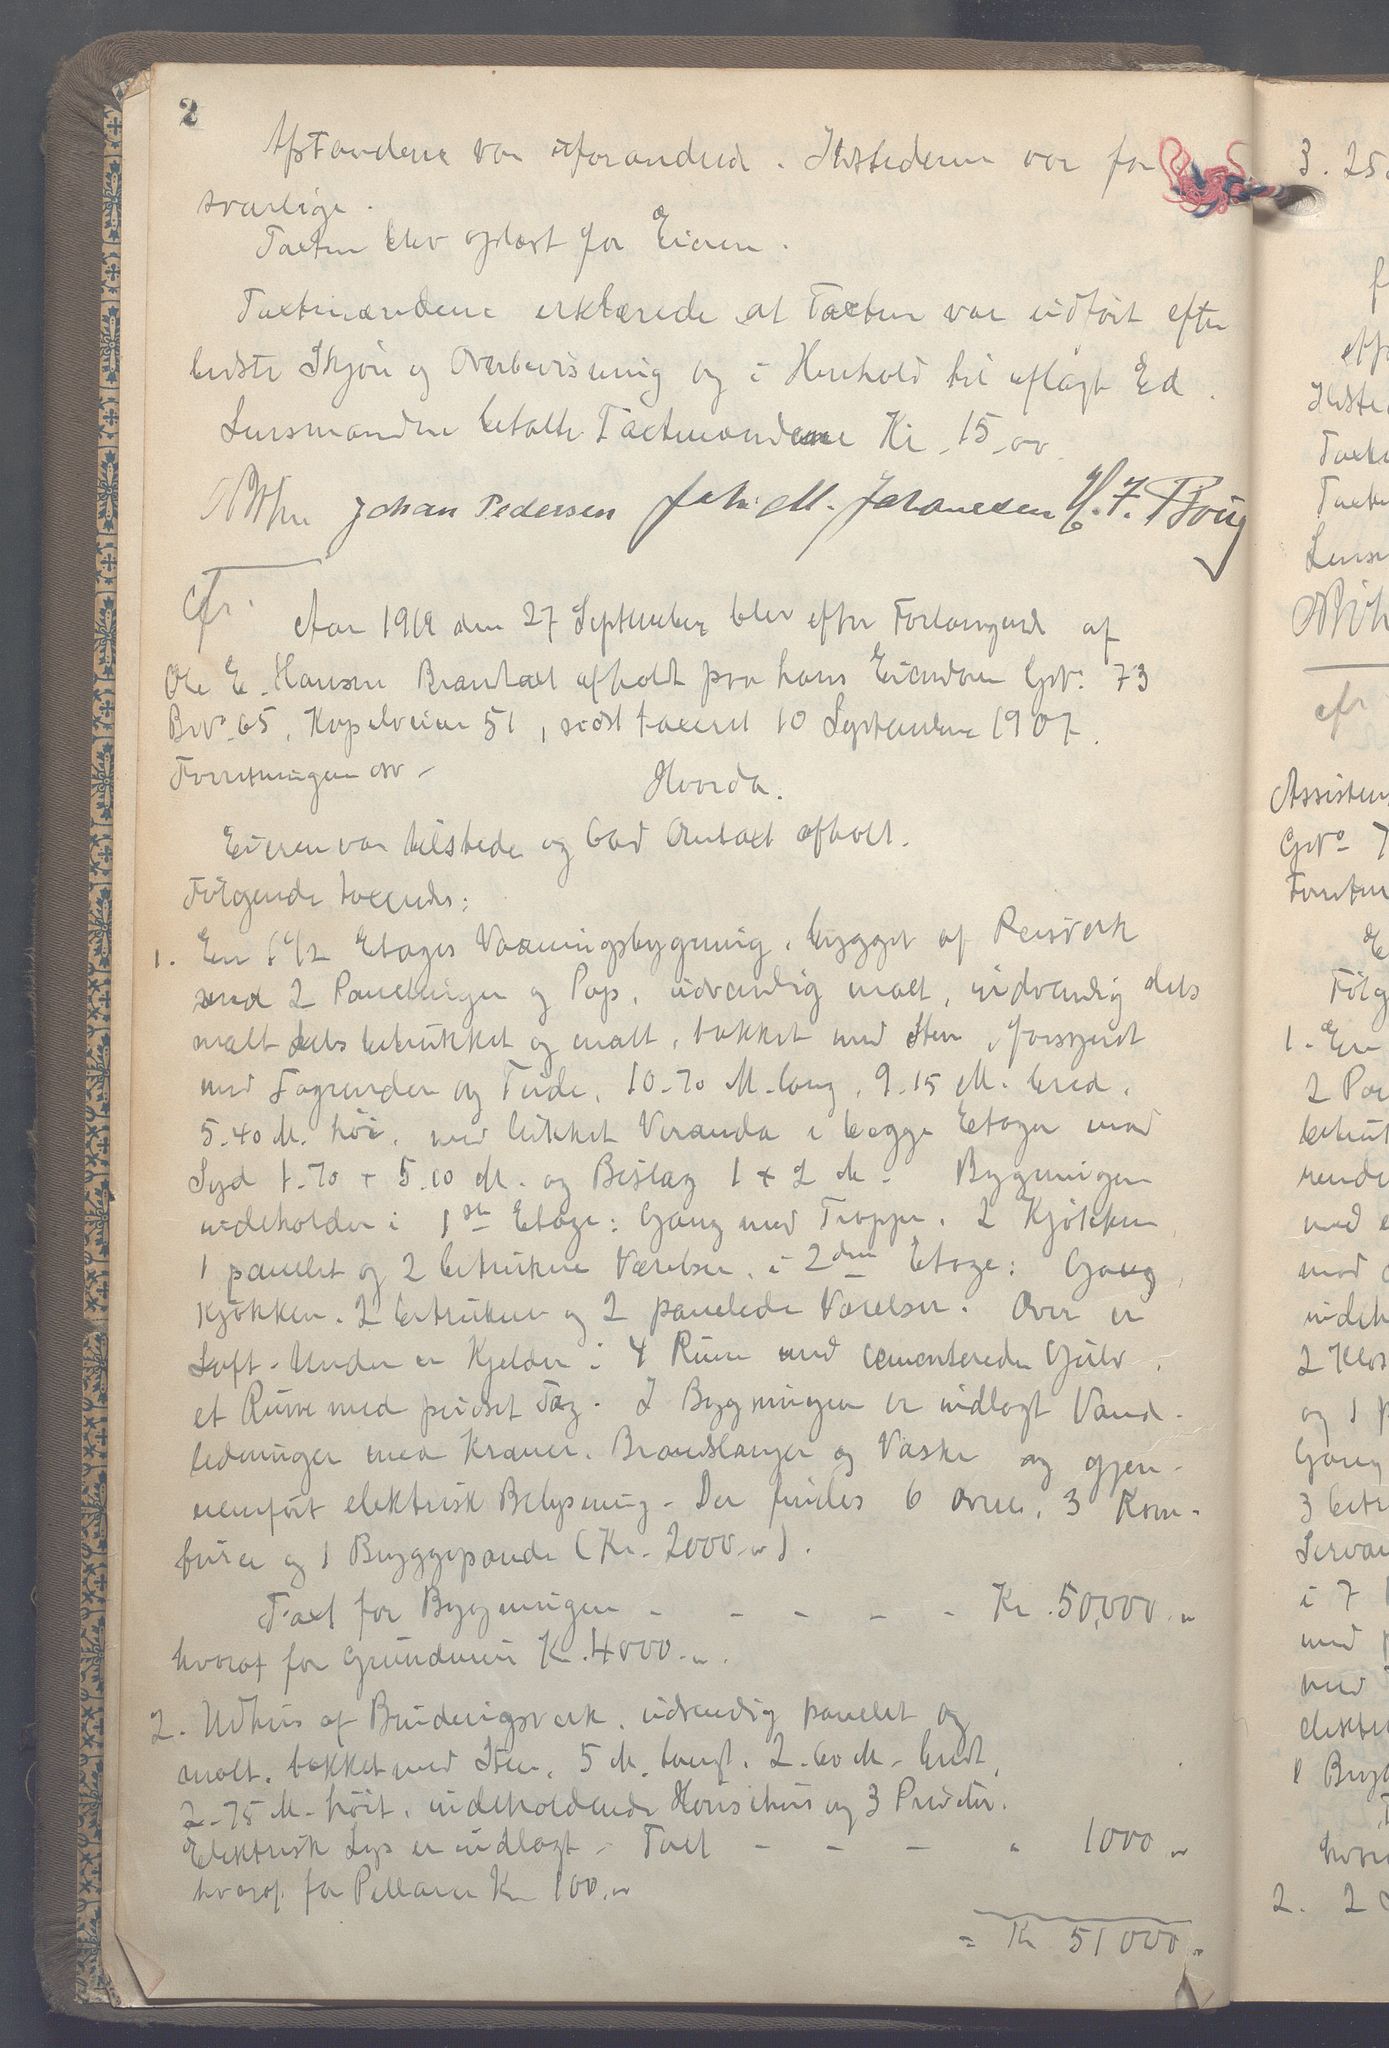 2
Afstandene var uforandrede. Ildstederne var for
svarlige.
Taxten blev oplæst for Eieren.
Taxtmændene erklærede at Taxten var udført efter
bedste Skjøn og Overbevisning og i Henhold til aflagt Ed.
Lensmanden betalte Taxtmændene Kr. 15.00
Johan Pedersen Joh. M. Johannesen
cfr.
Aar 1919 den 27 September blev efter Forlangende af
Ole E. Hansen Brantaxt afholdt paa hans Eiendom Gno. 73
Bno. 65, Kapelveien 51, sidst taxeret 10 September 1907.
Forretningen osv -
Hvorda.
Eieren var tilstede og bad Omtaxt afholt.
Følgende taxerdes:
1. En 1 1/2 Etages Vaaningsbygning, bygget af Reisverk
med 2 Panelinger og Pap, udvendig malt, indvendig dels
malt dels betrukket og malt, tækket med Sten, forsynet
med Tagrender og Tude, 10.70 M. lang, 9.15 M. bred,
5.40 M. høi, med lukket Veranda i begge Etager mod
Syd 1.70 + 5.10 M. og Bislag 1 + 2 M. Bygningen
indeholder i 1ste Etage: Gang med Trappe, 2 Kjøkken,
1 panelet og 2 betrukne Værelser, i 2den Etage: Gang,
Kjøkken, 2 betrukne og 2 panelede Værelser. Over er
Loft. Under er Kjelder i 4 Rum med cementerede Gulv,
et Rum med pudset Tag. I Bygningen er indlagt Vand-
ledninger med Kraner, Brandslanger og Vaske og gjen-
nemført elektrisk Belysning. Der findes 6 Ovne, 3 Kom-
furer og 1 Bryggepande (Kr. 2000.")
Taxt for Bygningen - - - - - Kr. 50,000."
hvoraf for Grundmur Kr. 4000.".
2. Udhus af Bindingsverk, udvendig panelet og
malt, tækket med Sten, 5 M. langt, 2.60 M. bredt,
2.75 M. høit, indeholdende Hønsehus og 3 Priveter.
Elektrisk Lys er indlagt - Taxt - - - " 1000."
hvoraf for Pillarer Kr. 100."
= Kr 51000."
3. 25